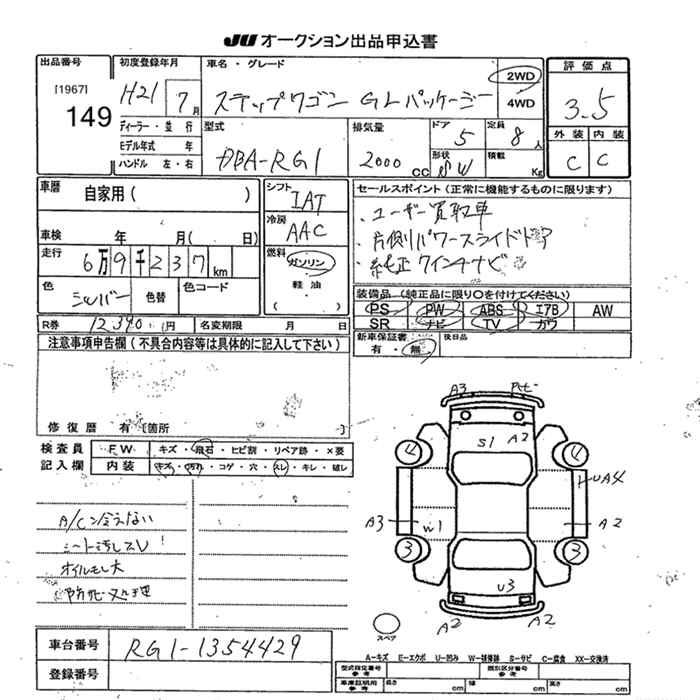 JU オークション出品申込書
出品番号
[1967]
149
初度登録年月
H21 7月
ディーラー・並行
モデル年式 年
ハンドル 左・右
車名・グレード
ステップワゴン GLパッケージ
2WD
4WD
型式
DBA-RG1
排気量
2000 cc
ドア
5
形状
SW
定員
8人
積載
Kg
評価点
3.5
外装 内装
C C
車歴
自家用( )
車検 年 月( 日)
走行 6万9千237km
色
シルバー
色替
色コード
シフト
IAT
冷房
AAC
燃料
ガソリン
軽油
( )
セールスポイント(正常に機能するものに限ります)
・ユーザー買取車
・片側パワースライドドア
・純正ワインチナビ
装備品(純正品に限り○を付けてください)
PS PW ABS エアB AW
SR ナビ TV カワ
R券 12,340円 名変期限 月 日
新車保証書
有・無
後日品
注意事項申告欄(不具合内容等は具体的に記入して下さい)
修復歴 有(箇所
検査員
記入欄
FW キズ・飛石・ヒビ割・リペア跡・×要
内装 キズ・汚れ・コゲ・穴・スレ・キレ・破レ
A/C冷えない
シート汚しスレ!
オイルモレ大
防死処理
A3
S1 A2
4 4
UA4
A3 W1 A2
3 3
U3
A2 A2
スペア
車台番号 RG1-1354429
登録番号
A-キズ E-エクボ U-凹み W-補修跡 S-サビ C-腐食 XX-交換済
型式指定番号
参考
類別区分番号
参考
車庫証明用
参考
長さ cm 幅 cm 高さ cm